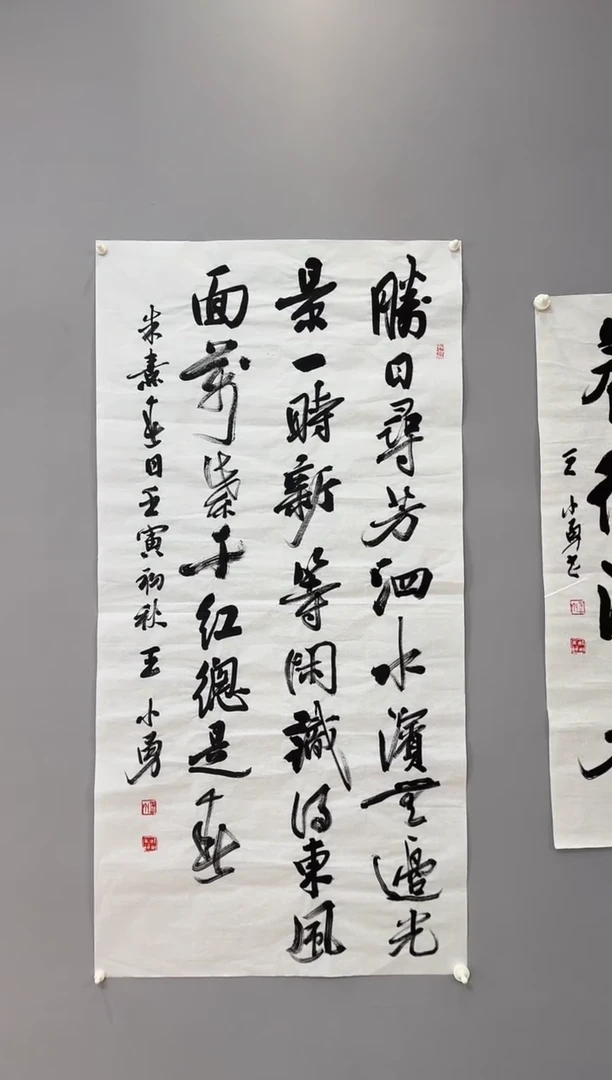 勝日尋芳泗水濱無邊光
景一時新等閑識得東風
面萬紫千紅總是春
朱熹春日壬寅初秋王小勇
王小勇书